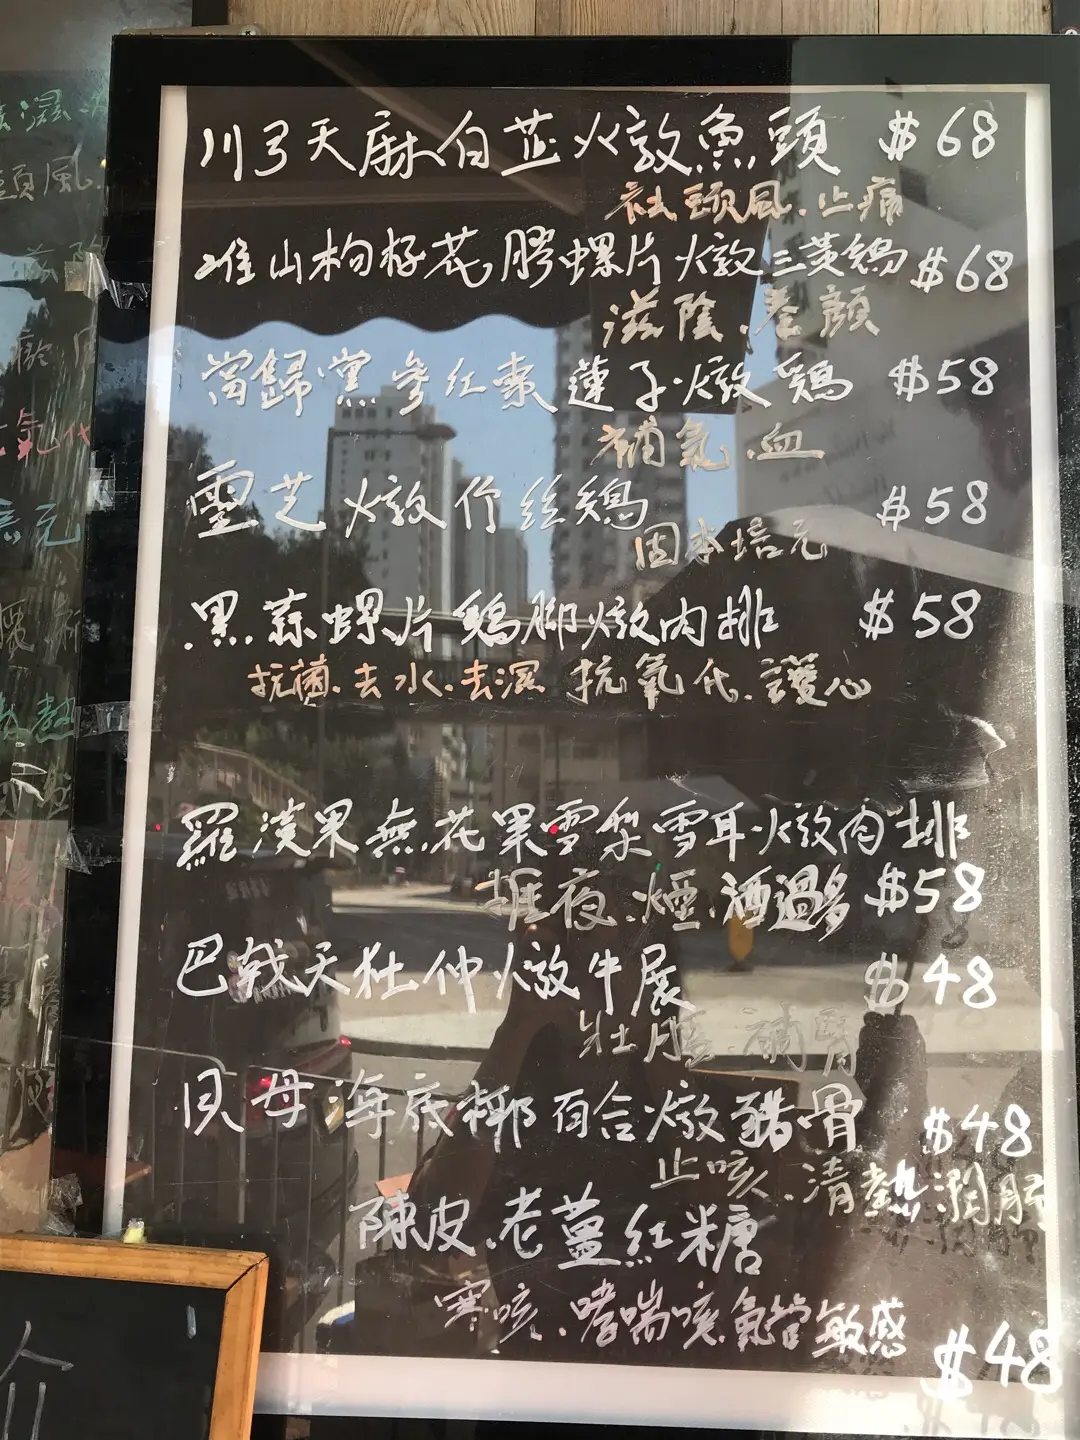 川弓天麻白芷火敦魚頭 $68
祛頭風.止痛
淮山枸杞花膠螺片燉三黃鷄 $68
滋陰.養顏
當歸黨參紅棗蓮子燉鷄 $58
補氣.血
靈芝燉竹絲鷄 $58
固本培元
黑蒜螺片鷄脚燉肉排 $58
抗菌.去水.去濕 抗氧代.護心
羅漢果無花果雪梨雪耳燉肉排
捱夜.煙.酒過多 $58
巴戟天杜仲燉牛展 $48
壯腰.補腎
貝母海底椰百合燉豬骨 $48
止咳.清熱潤肺
陳皮.老薑紅糖
寒咳.哮喘咳.氣管敏感
$48
介